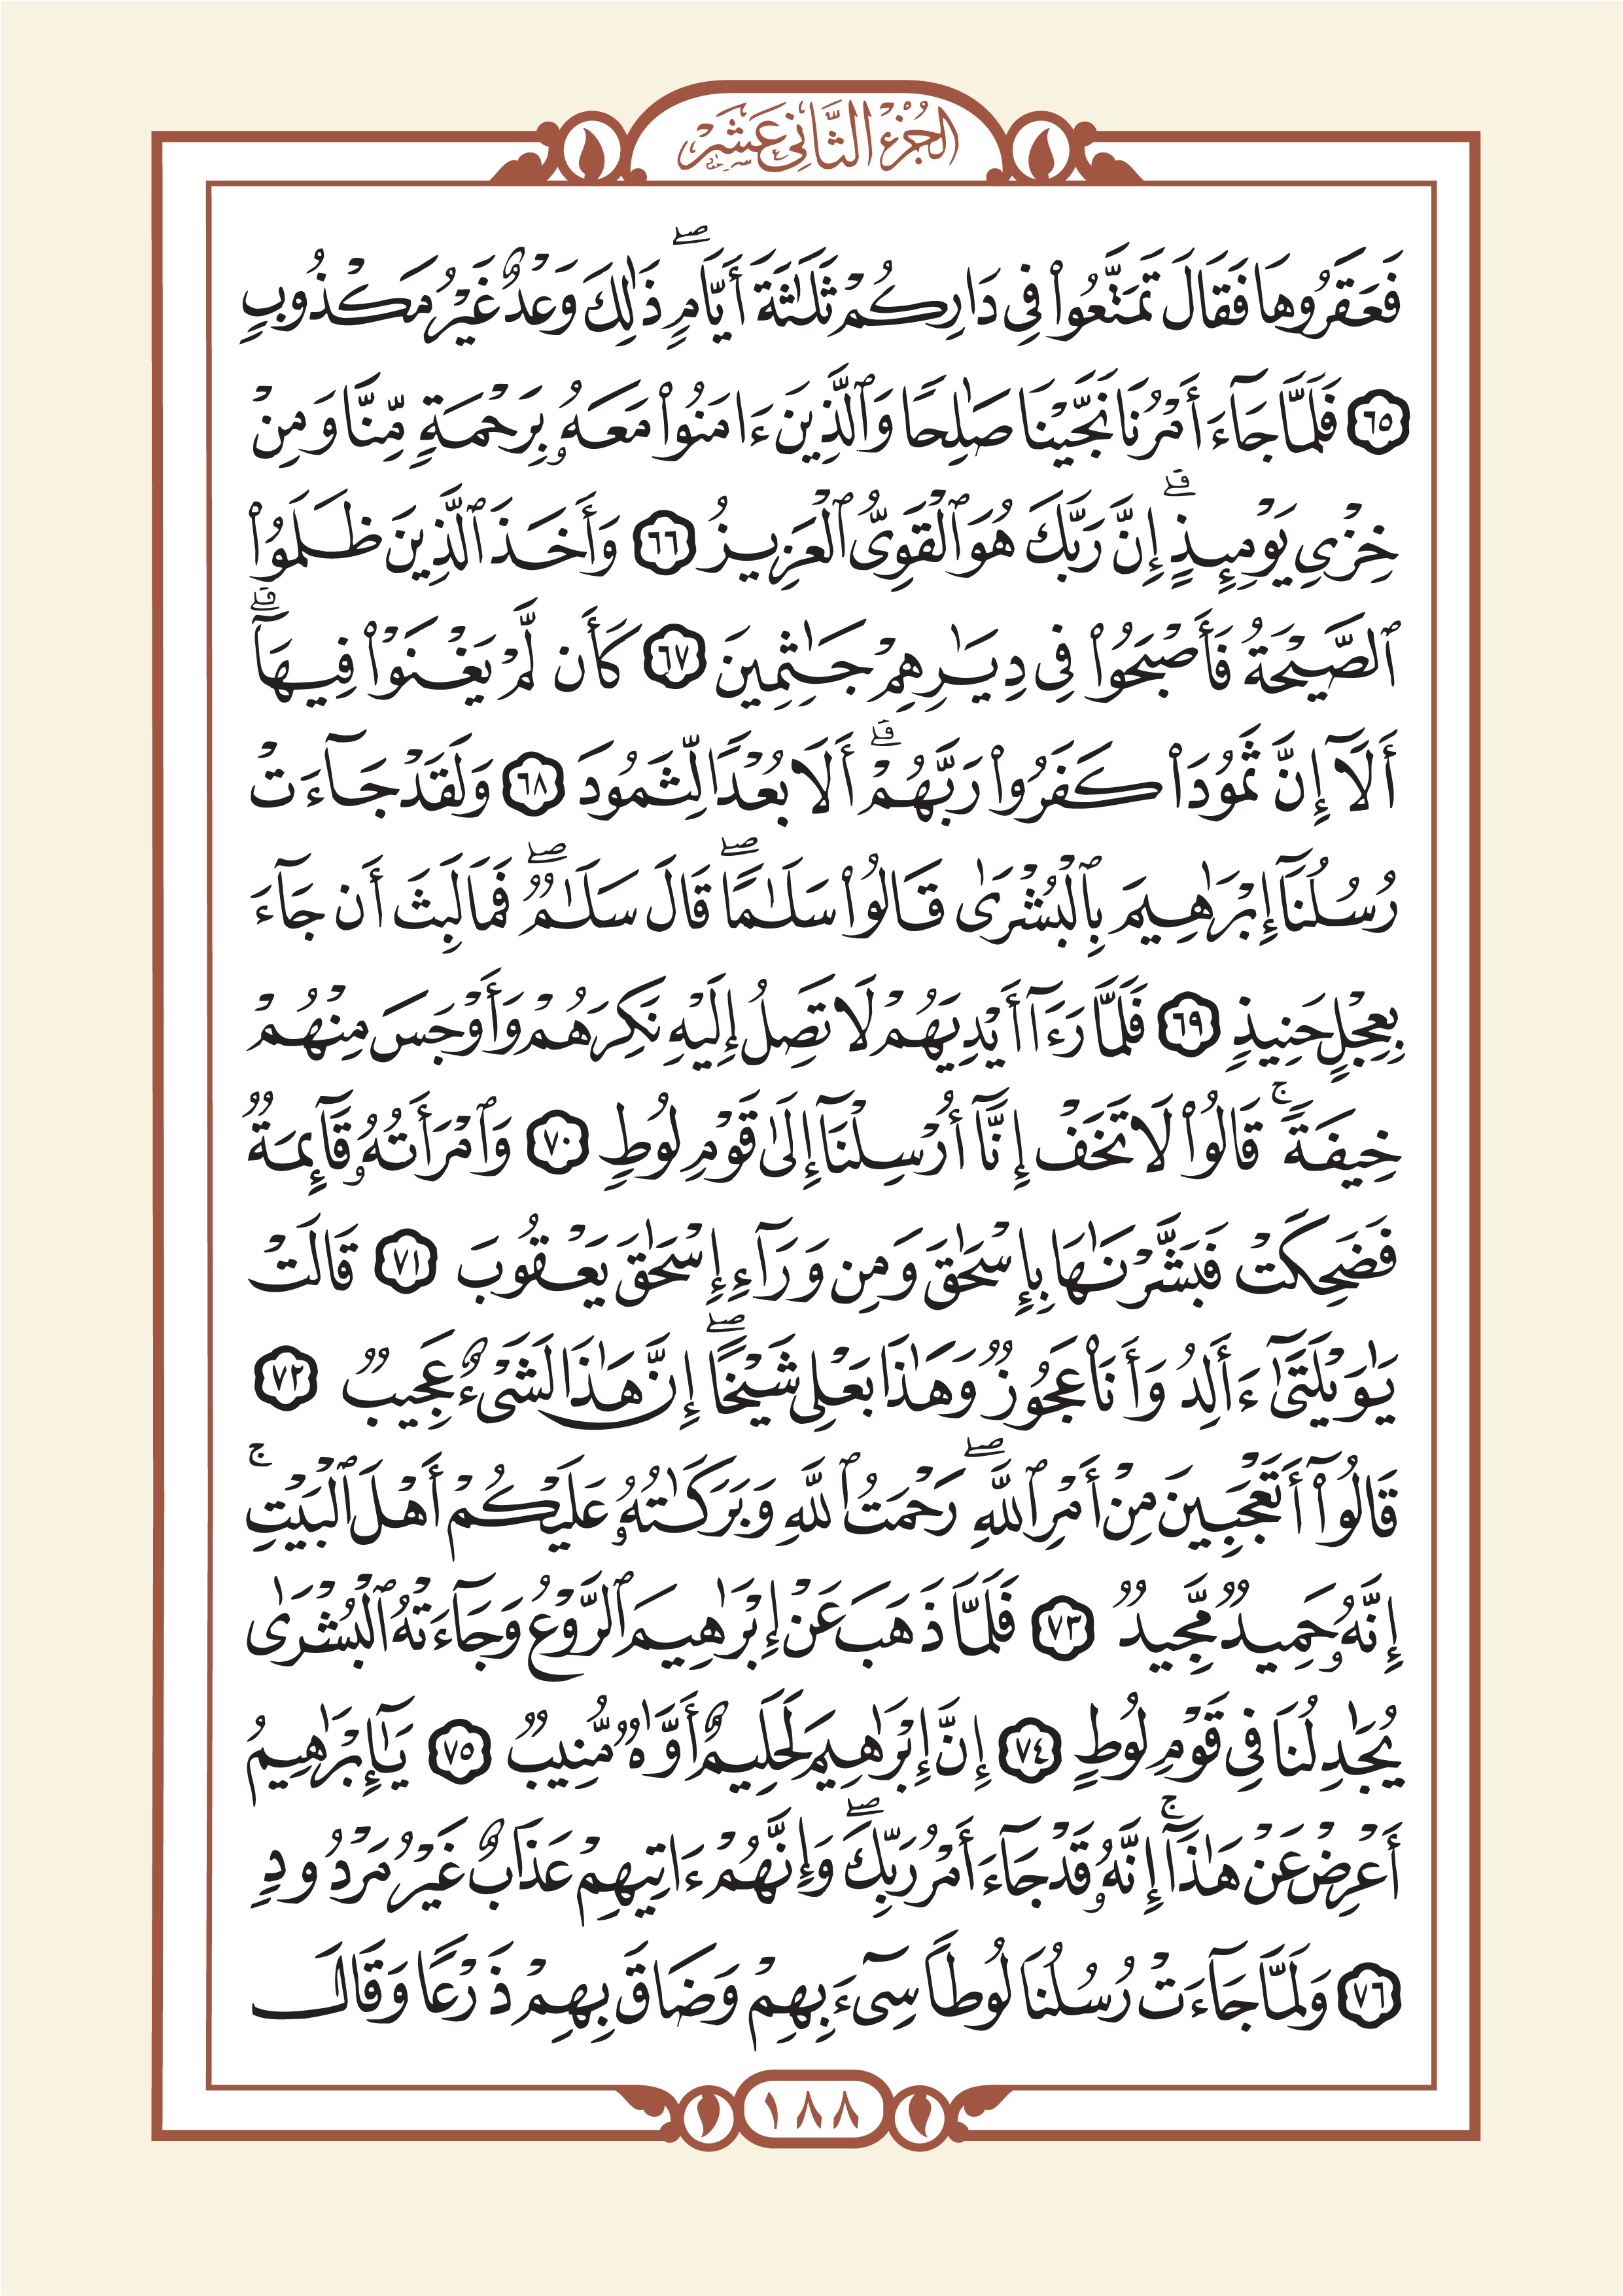 الجزء الثاني عشر
فَعَقَرُوهَا فَقَالَ تَمَتَّعُوا۟ فِى دَارِكُمْ ثَلَـٰثَةَ أَيَّامٍۢ ۖ ذَٰلِكَ وَعْدٌ غَيْرُ مَكْذُوبٍۢ
٦٥ فَلَمَّا جَآءَ أَمْرُنَا نَجَّيْنَا صَـٰلِحًۭا وَٱلَّذِينَ ءَامَنُوا۟ مَعَهُۥ بِرَحْمَةٍۢ مِّنَّا وَمِنْ
خِزْىِ يَوْمِئِذٍ ۗ إِنَّ رَبَّكَ هُوَ ٱلْقَوِىُّ ٱلْعَزِيزُ ٦٦ وَأَخَذَ ٱلَّذِينَ ظَلَمُوا۟
ٱلصَّيْحَةُ فَأَصْبَحُوا۟ فِى دِيَـٰرِهِمْ جَـٰثِمِينَ ٦٧ كَأَن لَّمْ يَغْنَوْا۟ فِيهَآ ۗ
أَلَآ إِنَّ ثَمُودَا۟ كَفَرُوا۟ رَبَّهُمْ ۗ أَلَا بُعْدًۭا لِّثَمُودَ ٦٨ وَلَقَدْ جَآءَتْ
رُسُلُنَآ إِبْرَٰهِيمَ بِٱلْبُشْرَىٰ قَالُوا۟ سَلَـٰمًۭا ۖ قَالَ سَلَـٰمٌۭ ۖ فَمَا لَبِثَ أَن جَآءَ
بِعِجْلٍ حَنِيذٍۢ ٦٩ فَلَمَّا رَءَآ أَيْدِيَهُمْ لَا تَصِلُ إِلَيْهِ نَكِرَهُمْ وَأَوْجَسَ مِنْهُمْ
خِيفَةًۭ ۚ قَالُوا۟ لَا تَخَفْ إِنَّآ أُرْسِلْنَآ إِلَىٰ قَوْمِ لُوطٍۢ ٧٠ وَٱمْرَأَتُهُۥ قَآئِمَةٌۭ
فَضَحِكَتْ فَبَشَّرْنَـٰهَا بِإِسْحَـٰقَ وَمِن وَرَآءِ إِسْحَـٰقَ يَعْقُوبَ ٧١ قَالَتْ
يَـٰوَيْلَتَىٰٓ ءَأَلِدُ وَأَنَا۠ عَجُوزٌۭ وَهَـٰذَا بَعْلِى شَيْخًا ۖ إِنَّ هَـٰذَا لَشَىْءٌ عَجِيبٌۭ ٧٢
قَالُوٓا۟ أَتَعْجَبِينَ مِنْ أَمْرِ ٱللَّهِ ۖ رَحْمَتُ ٱللَّهِ وَبَرَكَـٰتُهُۥ عَلَيْكُمْ أَهْلَ ٱلْبَيْتِ ۚ
إِنَّهُۥ حَمِيدٌۭ مَّجِيدٌۭ ٧٣ فَلَمَّا ذَهَبَ عَنْ إِبْرَٰهِيمَ ٱلرَّوْعُ وَجَآءَتْهُ ٱلْبُشْرَىٰ
يُجَـٰدِلُنَا فِى قَوْمِ لُوطٍ ٧٤ إِنَّ إِبْرَٰهِيمَ لَحَلِيمٌ أَوَّٰهٌۭ مُّنِيبٌۭ ٧٥ يَـٰٓإِبْرَٰهِيمُ
أَعْرِضْ عَنْ هَـٰذَآ ۚ إِنَّهُۥ قَدْ جَآءَ أَمْرُ رَبِّكَ ۖ وَإِنَّهُمْ ءَاتِيهِمْ عَذَابٌ غَيْرُ مَرْدُودٍۢ
٧٦ وَلَمَّا جَآءَتْ رُسُلُنَا لُوطًۭا سِىٓءَ بِهِمْ وَضَاقَ بِهِمْ ذَرْعًۭا وَقَالَ
١٨٨